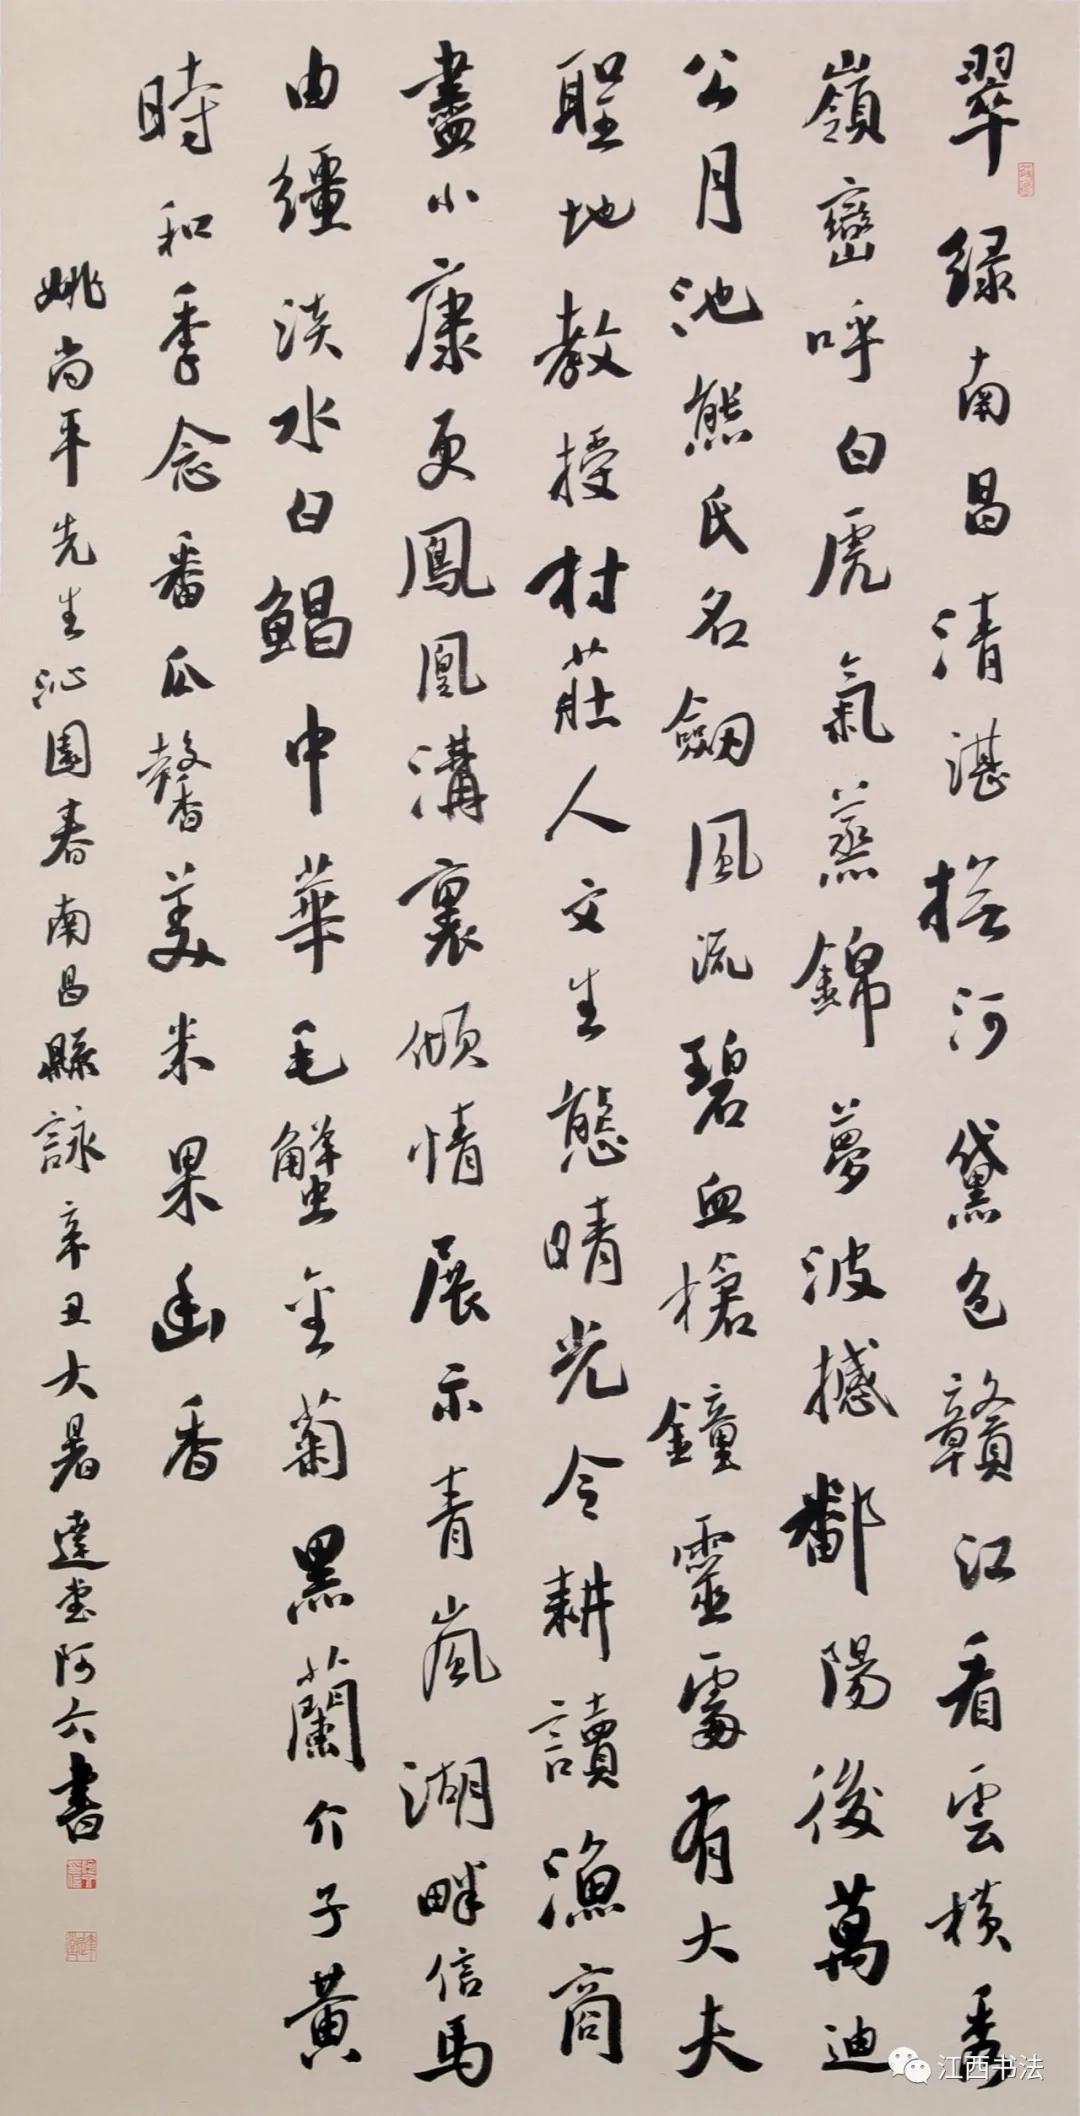 翠綠南昌清湛撫河黛色贛江看雲橫秀
嶺巒呼白虎氣蒸錦夢波撼鄱陽後萬迪
公月池熊氏名劒風流碧血槍鐘靈處有大夫
聖地教授村莊人文生態晴光令耕讀漁商
盡小康更鳳凰溝裏傾情展示青嵐湖畔信馬
由繮淡水白鯧中華毛蟹金菊黑蘭介子黃
時和季念番瓜馨美米果幽香
姚尚平先生沁園春南昌縣詠辛丑大暑達堂阿六書
江西书法